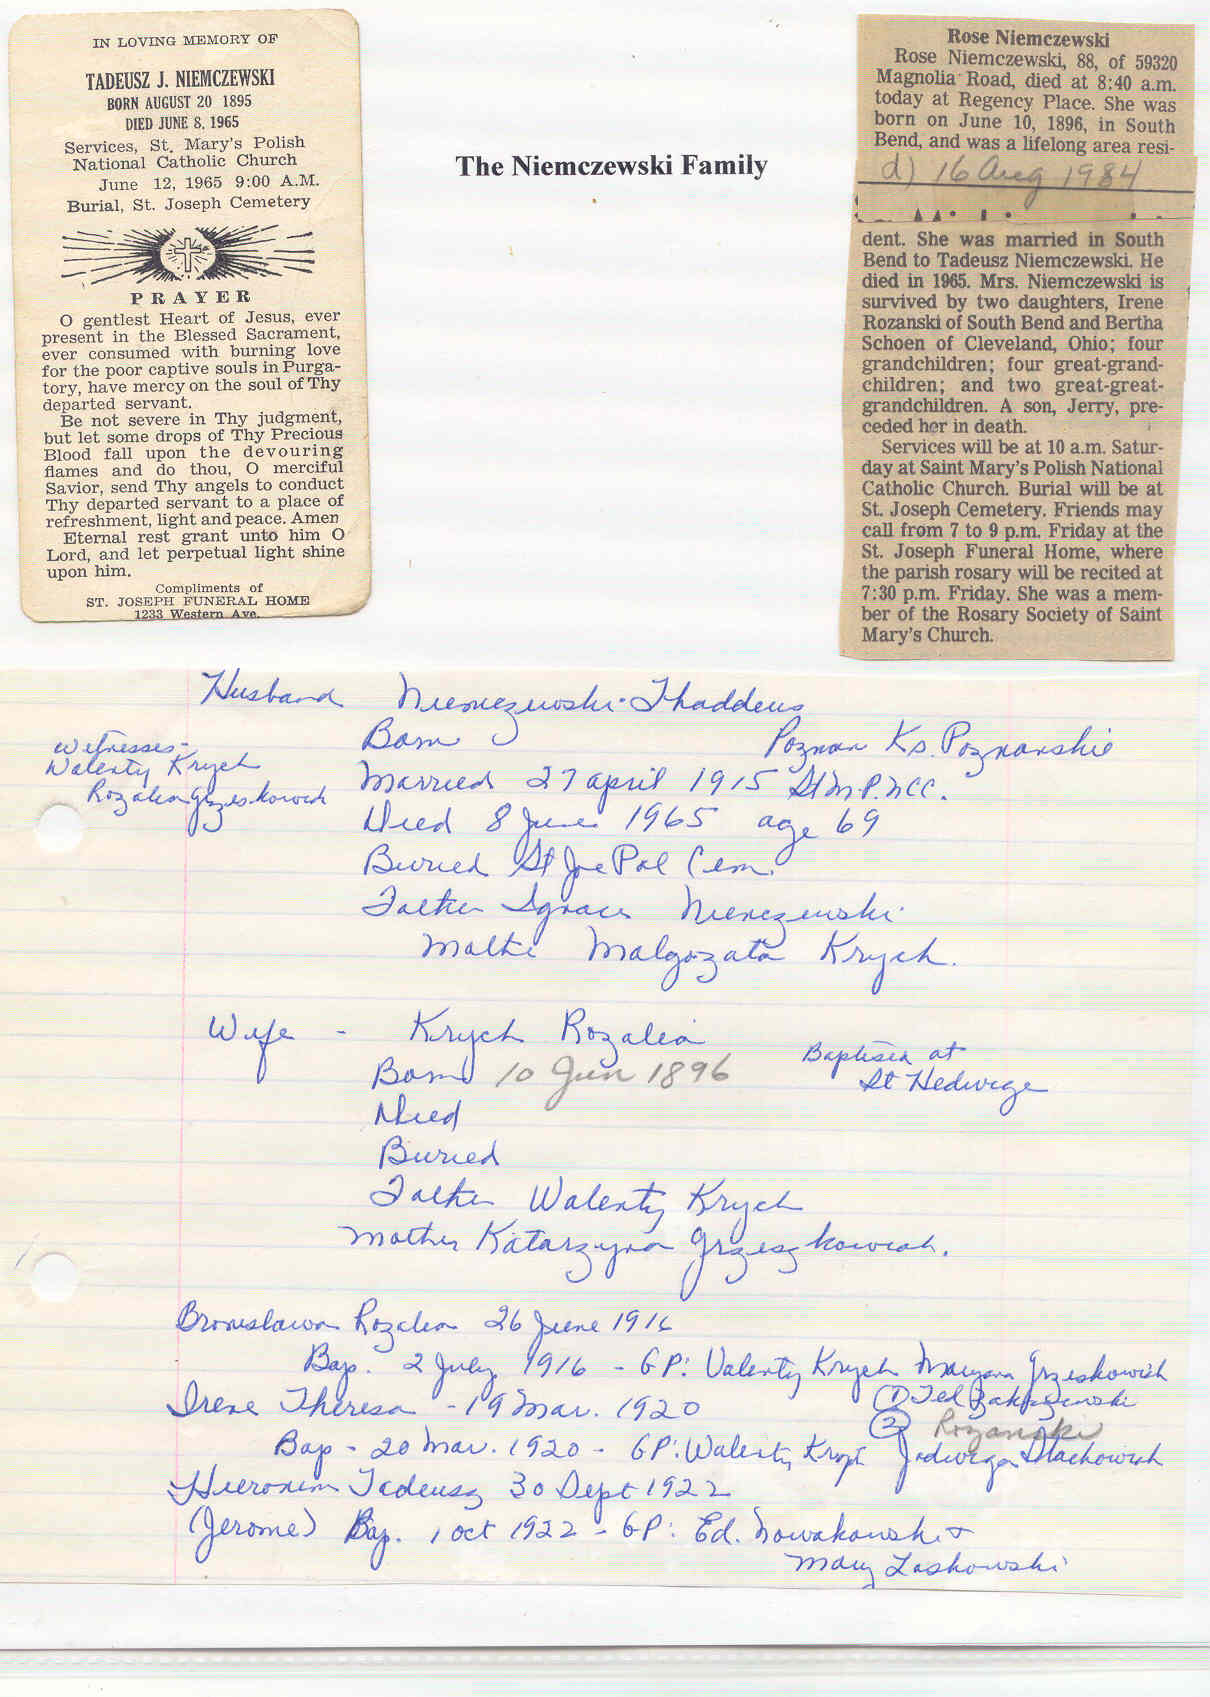 IN LOVING MEMORY OF
TADEUSZ J. NIEMCZEWSKI
BORN AUGUST 20 1895
DIED JUNE 8, 1965
Services, St. Mary's Polish
National Catholic Church
June 12, 1965 9:00 A.M.
Burial, St. Joseph Cemetery
PRAYER
O gentlest Heart of Jesus, ever
present in the Blessed Sacrament,
ever consumed with burning love
for the poor captive souls in Purga-
tory, have mercy on the soul of Thy
departed servant.
Be not severe in Thy judgment,
but let some drops of Thy Precious
Blood fall upon the devouring
flames and do thou, O merciful
Savior, send Thy angels to conduct
Thy departed servant to a place of
refreshment, light and peace. Amen
Eternal rest grant unto him O
Lord, and let perpetual light shine
upon him.
Compliments of
ST. JOSEPH FUNERAL HOME
1233 Western Ave.
The Niemczewski Family
Rose Niemczewski
Rose Niemczewski, 88, of 59320
Magnolia Road, died at 8:40 a.m.
today at Regency Place. She was
born on June 10, 1896, in South
Bend, and was a lifelong area resi-
d) 16 Aug 1984
dent. She was married in South
Bend to Tadeusz Niemczewski. He
died in 1965. Mrs. Niemczewski is
survived by two daughters, Irene
Rozanski of South Bend and Bertha
Schoen of Cleveland, Ohio; four
grandchildren; four great-grand-
children; and two great-great-
grandchildren. A son, Jerry, pre-
ceded her in death.
Services will be at 10 a.m. Satur-
day at Saint Mary's Polish National
Catholic Church. Burial will be at
St. Joseph Cemetery. Friends may
call from 7 to 9 p.m. Friday at the
St. Joseph Funeral Home, where
the parish rosary will be recited at
7:30 p.m. Friday. She was a mem-
ber of the Rosary Society of Saint
Mary's Church.
Husband Niemczewski-Thaddeus
Born Poznan Ks. Poznanskie
Witnesses-
Walenty Krych
Rozalia Grzeskowiak
Married 27 april 1915 St M.P.NCC.
Died 8 June 1965 age 69
Buried St Joe Pol Cem.
Father Ignac Niemczewski
Mother Malgozata Krych.
Wife - Krych Rozalia
Born 10 Jun 1896
Baptised at
St Hedwige
Died
Buried
Father Walenty Krych
Mother Katarzyna Grzeszkowiak.
Bronislawa Rozalia 26 June 1916
Bap. 2 July 1916 - GP: Valenty Krych Maryan Grzeskowiak
Irene Theresa - 19 Mar. 1920
(1) Ted
(2) Rozanski
Bap - 20 Mar. 1920 - GP: Walenty Krych Jadwiga Stachowiak
Hieronim Tadeusz 30 Sept 1922
(Jerome) Bap. 1 Oct 1922 - GP: Ed. Nowakowski +
Mary Laskowski